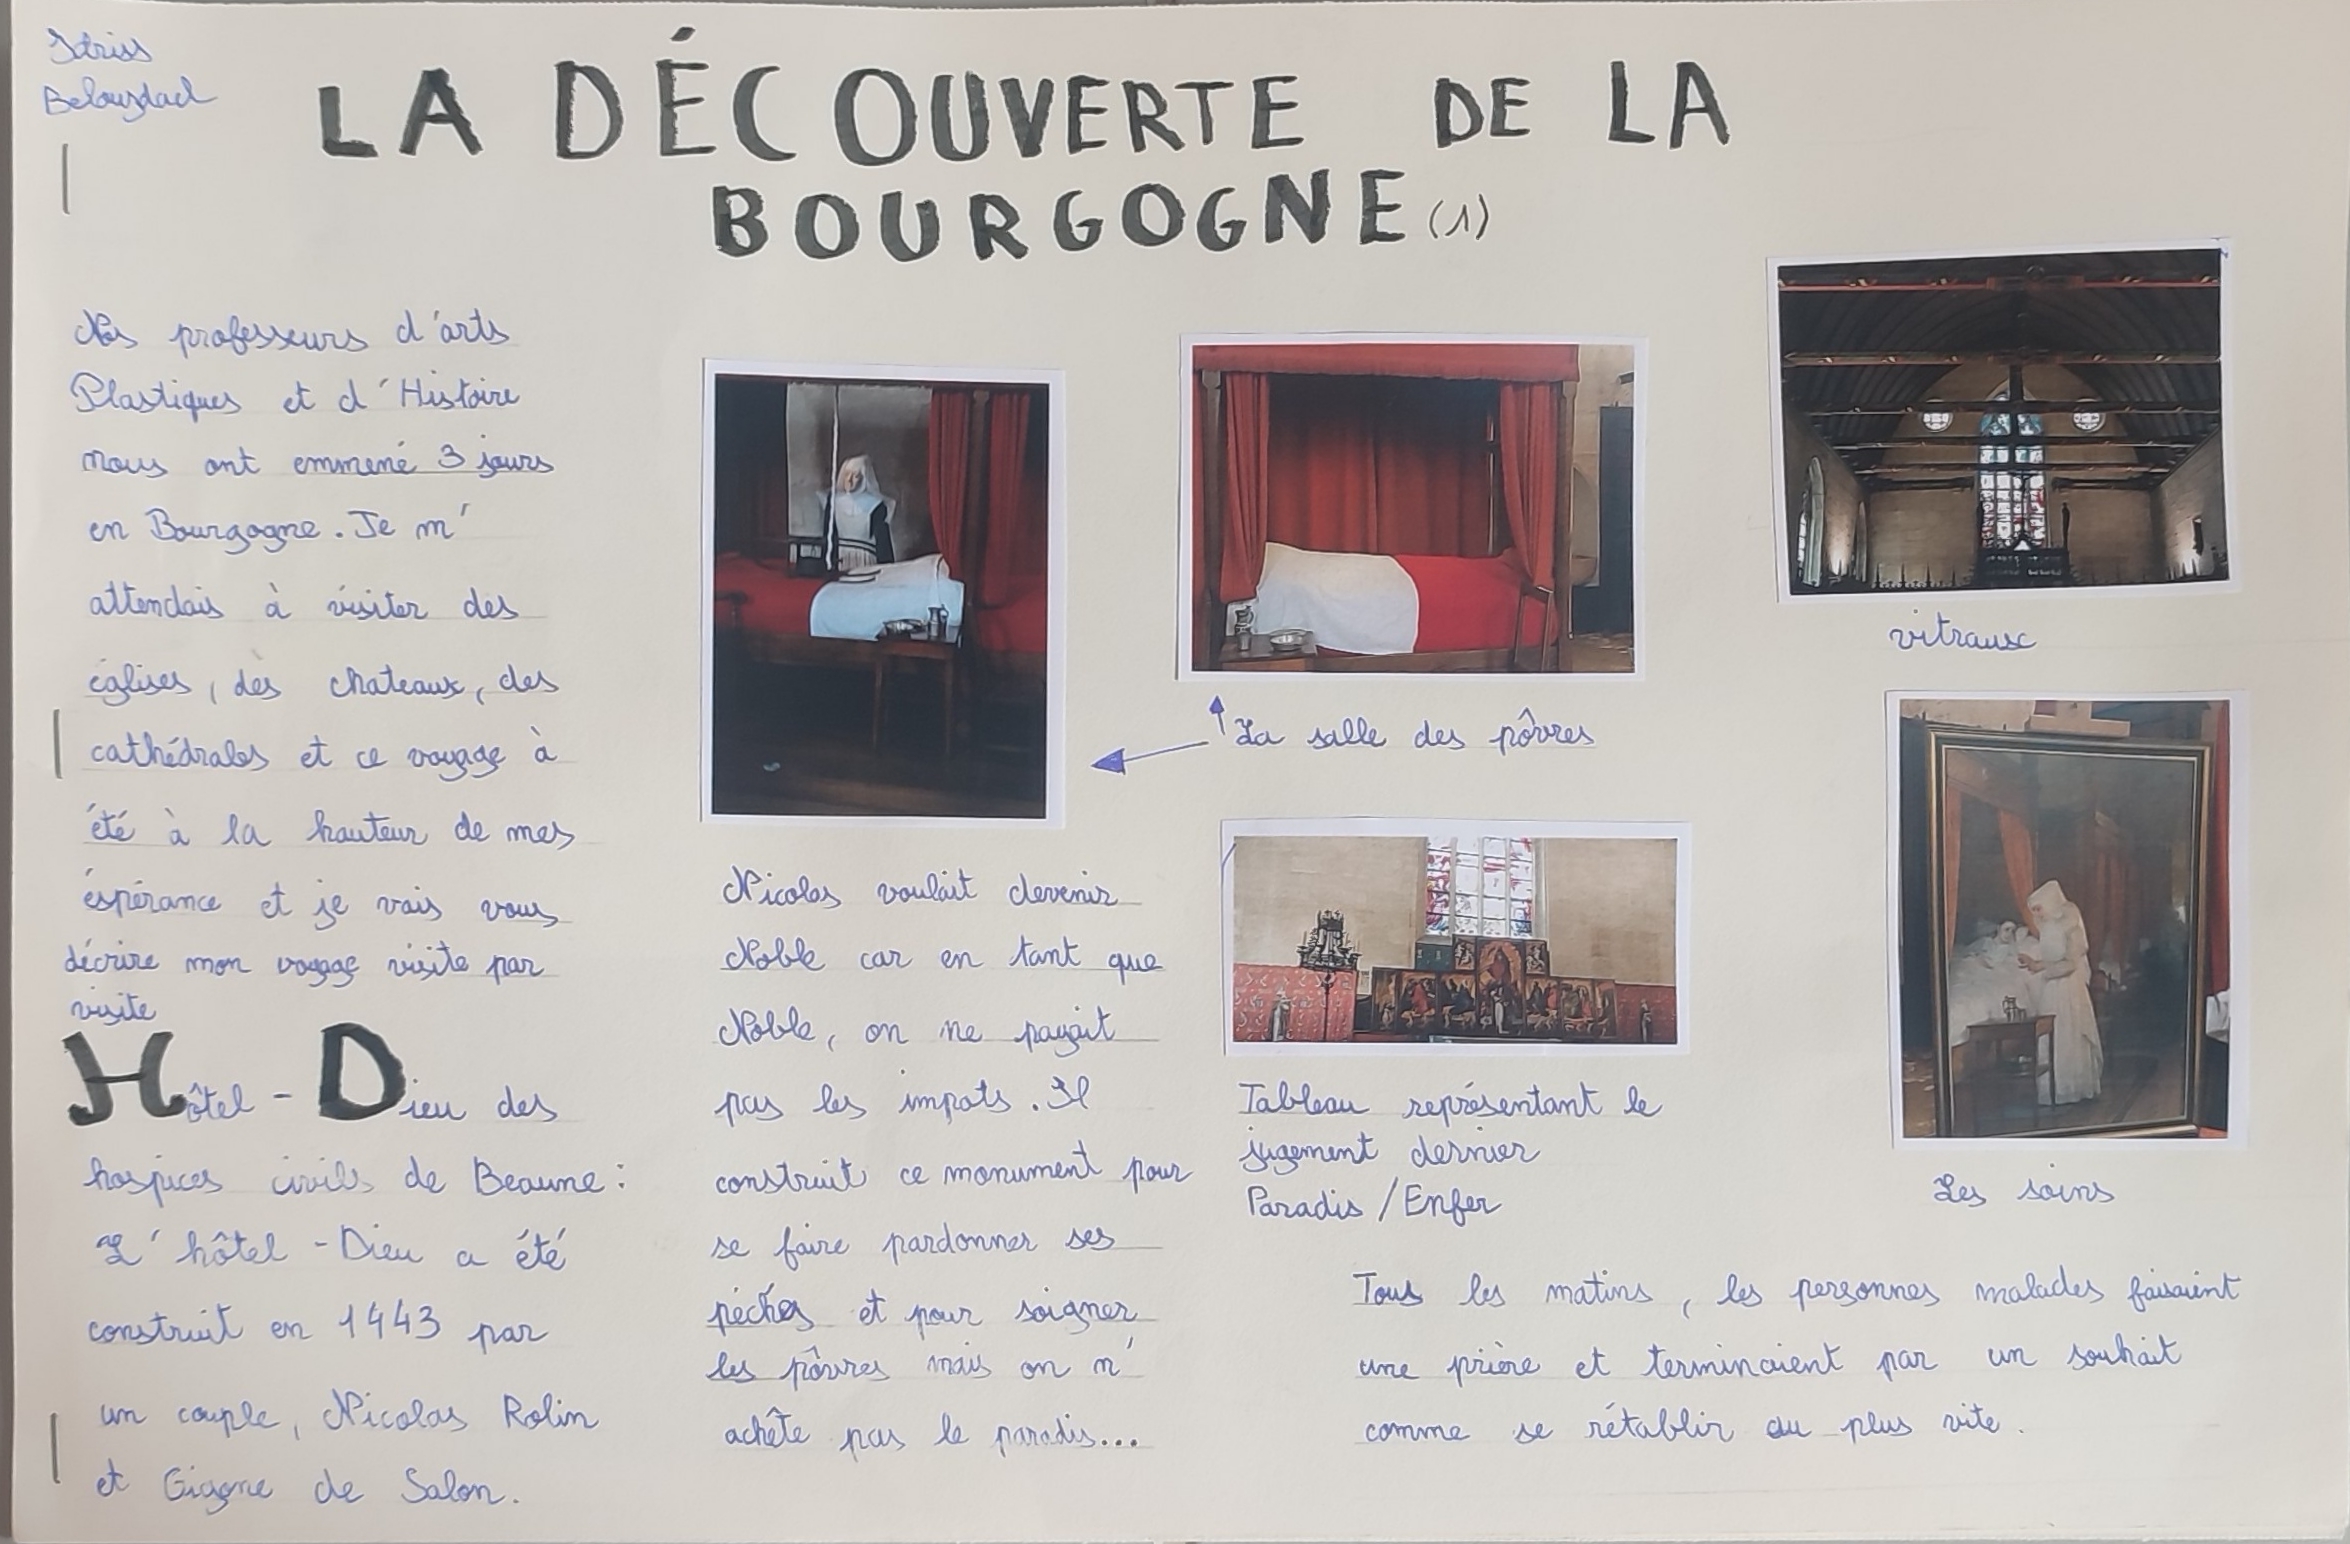 Idriss
Belouzdad
LA DÉCOUVERTE DE LA
BOURGOGNE (1)
Nos professeurs d'arts
Plastiques et d'Histoire
nous ont emmené 3 jours
en Bourgogne. Je m'
attendais à visiter des
églises, des chateaux, des
cathédrales et ce voyage à
été à la hauteur de mes
éspérance et je vais vous
décrire mon voyage visite par
visite
Hôtel - Dieu des
hospices civils de Beaune :
L'hôtel - Dieu a été
construit en 1443 par
un couple, Nicolas Rolin
et Gigogne de Salon.
Nicolas voulait devenir
Noble car en tant que
Noble, on ne payait
pas les impots. Il
construit ce monument pour
se faire pardonner ses
péchés et pour soigner
les pôvres mais on n'
achête pas le paradis...
La salle des pôvres
Tableau représentant le
jugement dernier
Paradis / Enfer
vitraux
Les soins
Tous les matins, les personnes malades faisaient
une prière et terminaient par un souhait
comme se rétablir au plus vite.